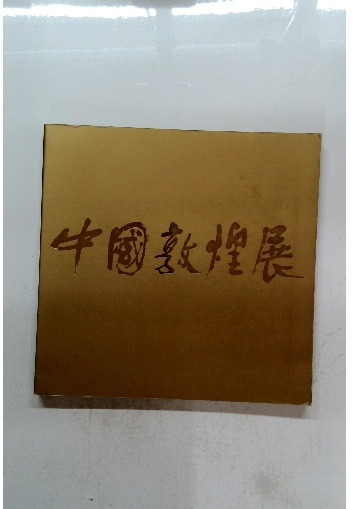 中國敦煌展